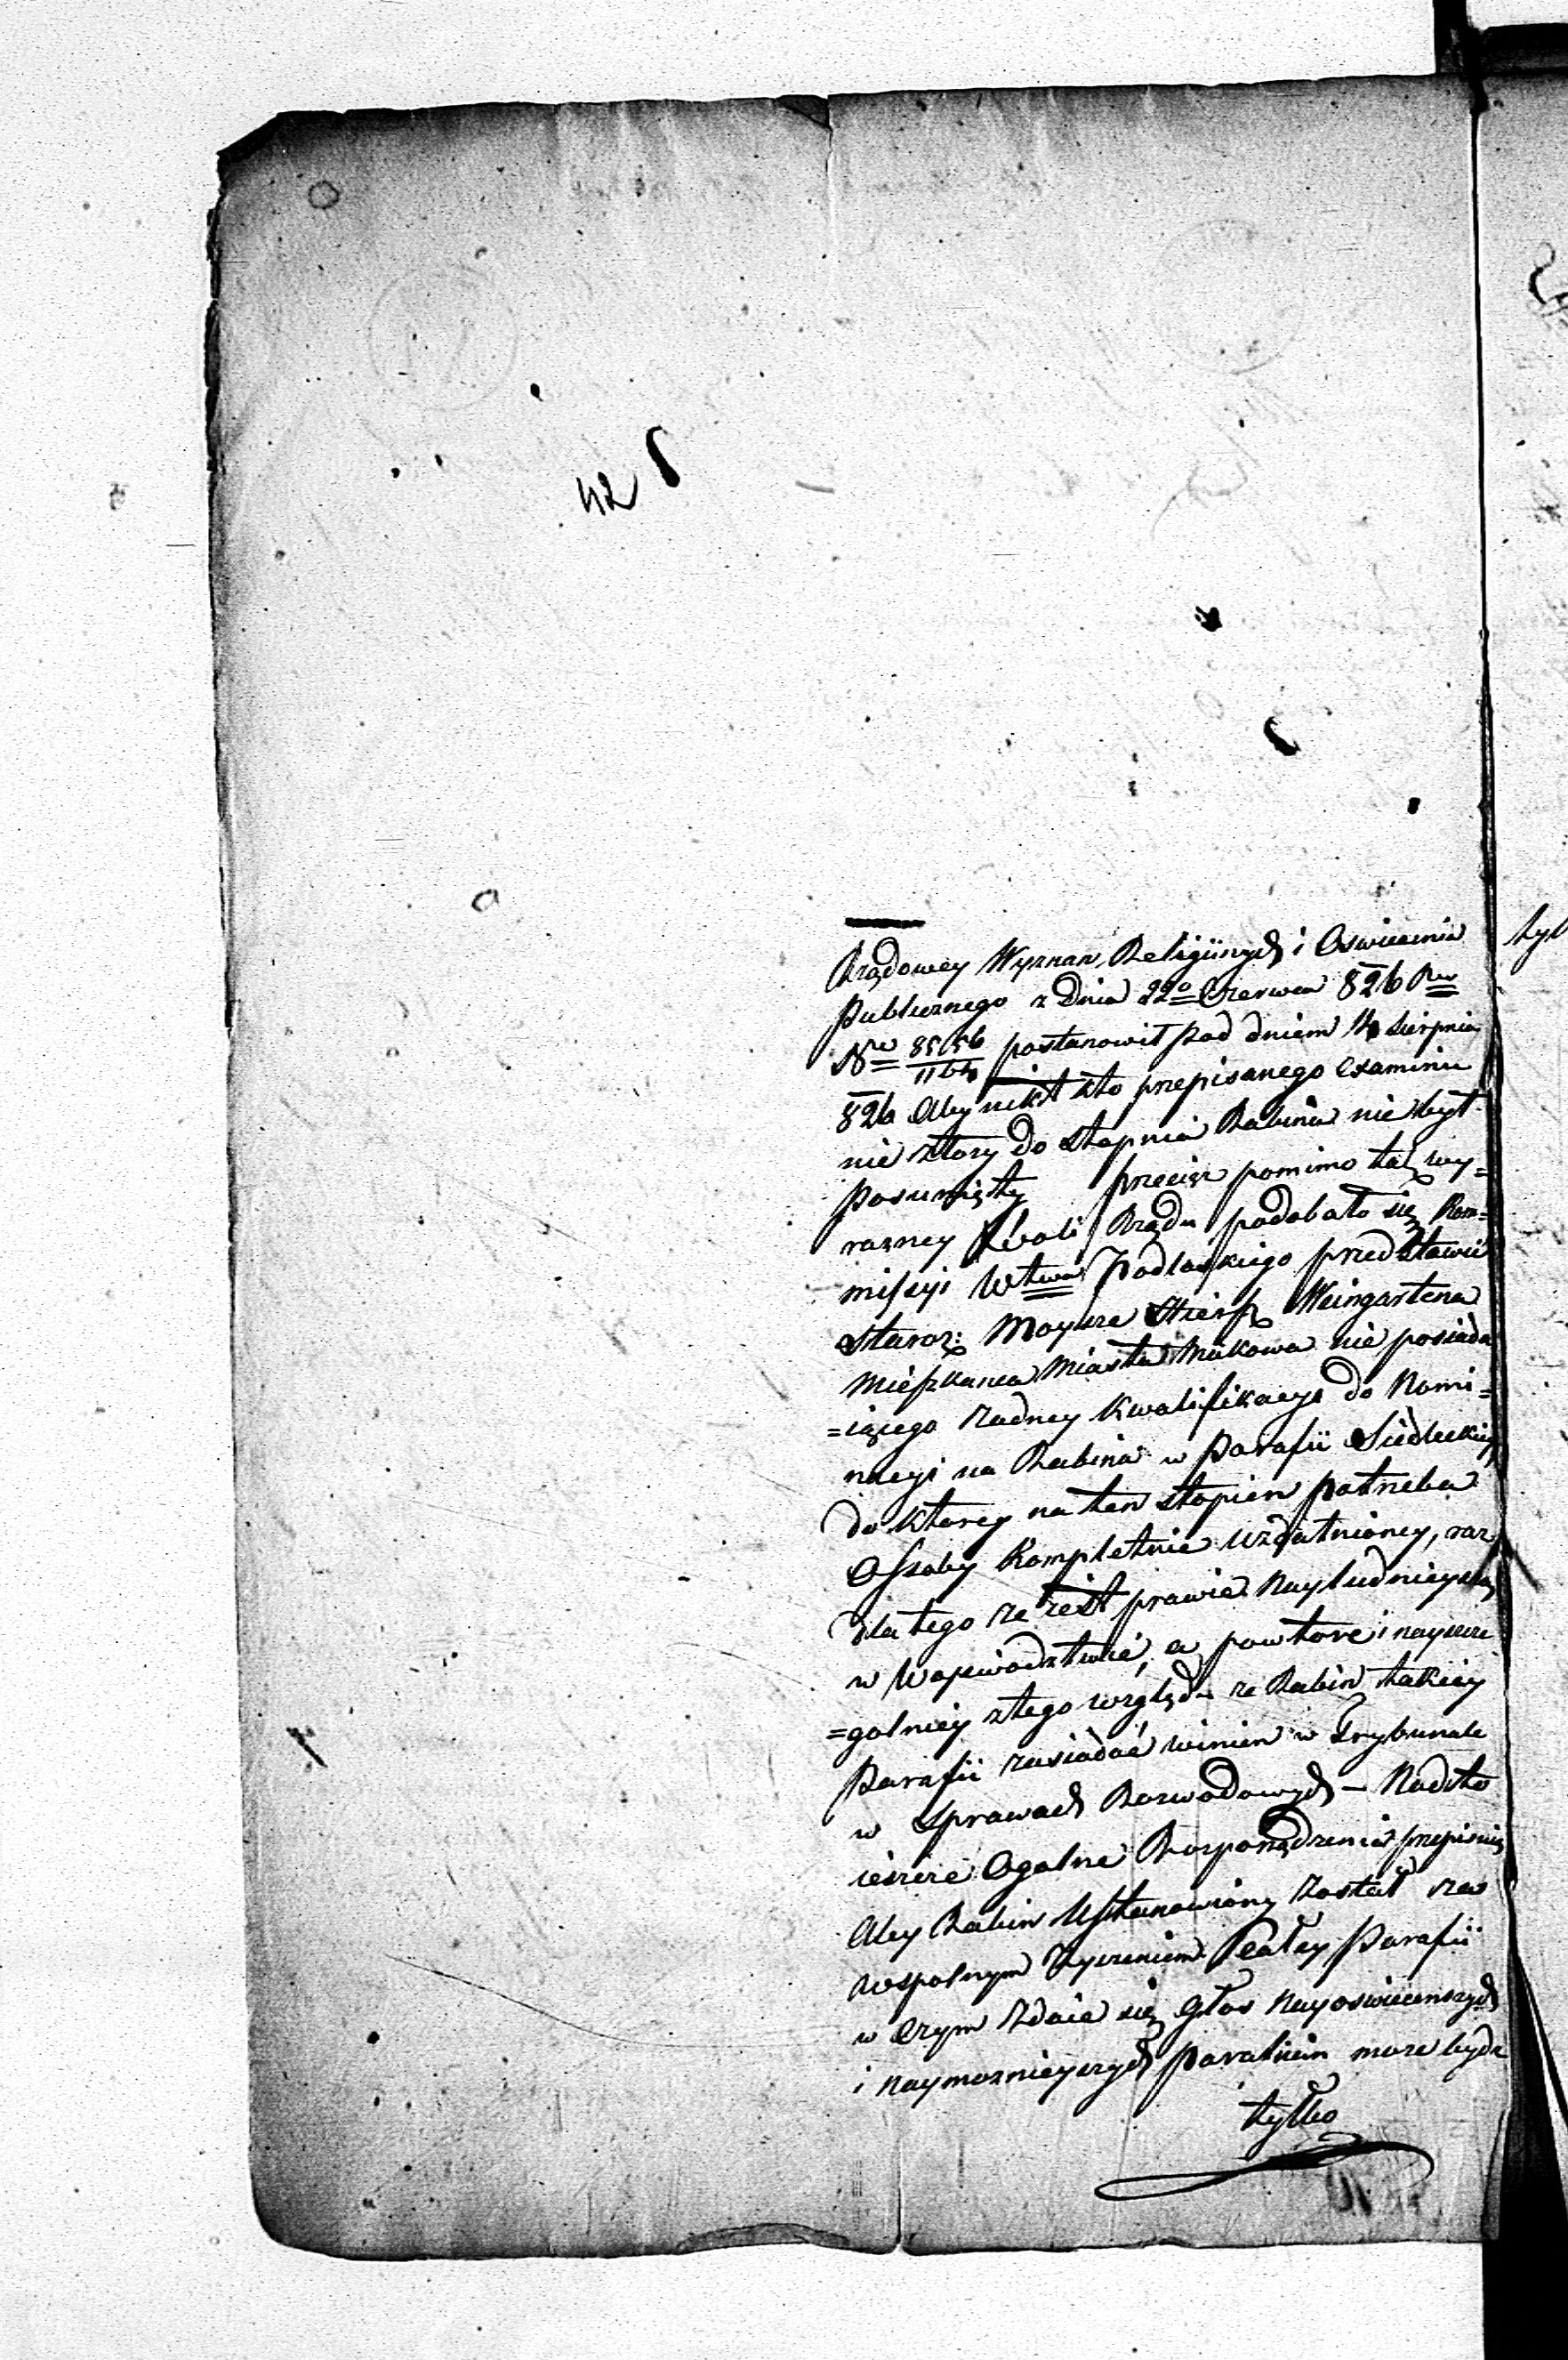 42
Rządowey Wyznan Religiinych i Oswiecenia
Publicznego z Dnia 22º Czerwca 826 Rw
Nro 8556/1164 postanowił pod dniem 14 Sierpnia
826 Aby nikt kto przepisanego Examinu
nie złozy do stopnia Rabina nie był
posunięty przecież pomimo tak wy=
razney Woli Rządu podobało się Kom=
missyi Wtwa Podlaskiego przedstawić
Staroz: Moyżesza Hersz Weingartena
Mieszkanca Miasta Makowa nie posiada
=iącego żadney kwalifikacyi do Nomi=
nacyi na Rabina w Parafii Siedleckiey
do ktorey na ten stopien potrzeba
Ossoby kompletnie uzdatnioney, raz
dla tego ze iest prawie nayludnieyszą
w Woiewodztwie, a powtore i naysze
=golniey z tego względu ze Rabin takiey
Parafii zasiadać winien w Trybunale
w Sprawach Rozwodowych – Nadto
ieszcze Ogolne Rozporządzenia przepisuią
Aby Rabin Ustanowiony został za
wspolnym Zyczeniem Całey Parafii
w czym zdaie się głos nayoswiecenszych
i naymoznieyszych Parafian moze bydz
tylko
tyl